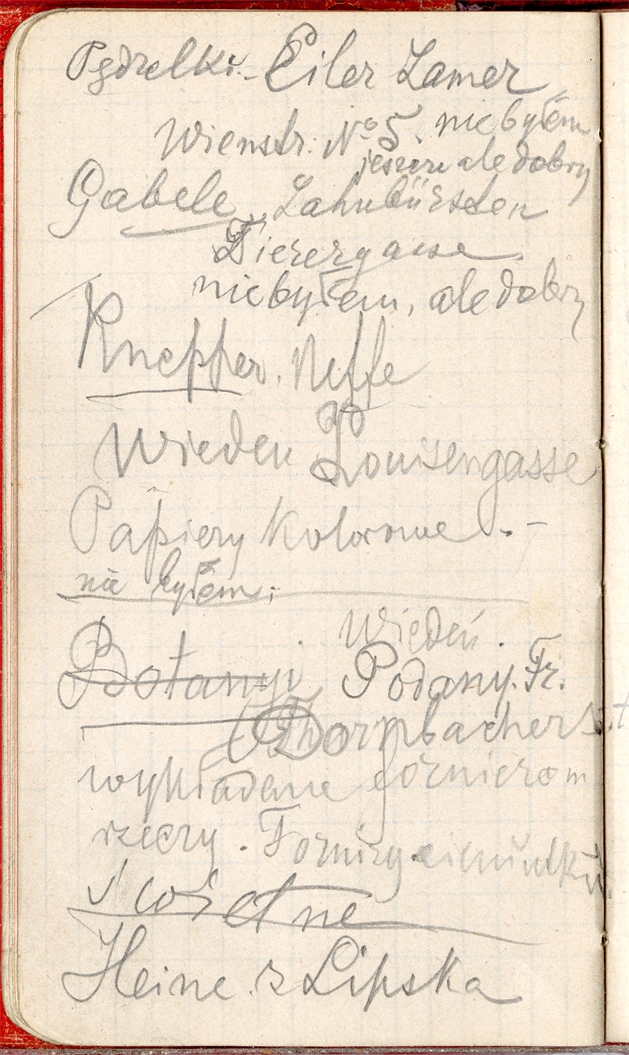 Pędzelki. Eiler Lamer
Wienstr. No 5. nie byłem
jeszcze ale dobry
Gabele „Zahnbürsten
Zierergasse
nie byłem, ale dobry
Knepper. Neffe
Wieden Louisengasse
Papiery kolorowe . –
nie byłem;
Wiedeń.
Botanyi Podany. Fr.
(Dornbacherst
wykładane fornierom
rzeczy. Forniry cieniutkie
Heine. z Lipska